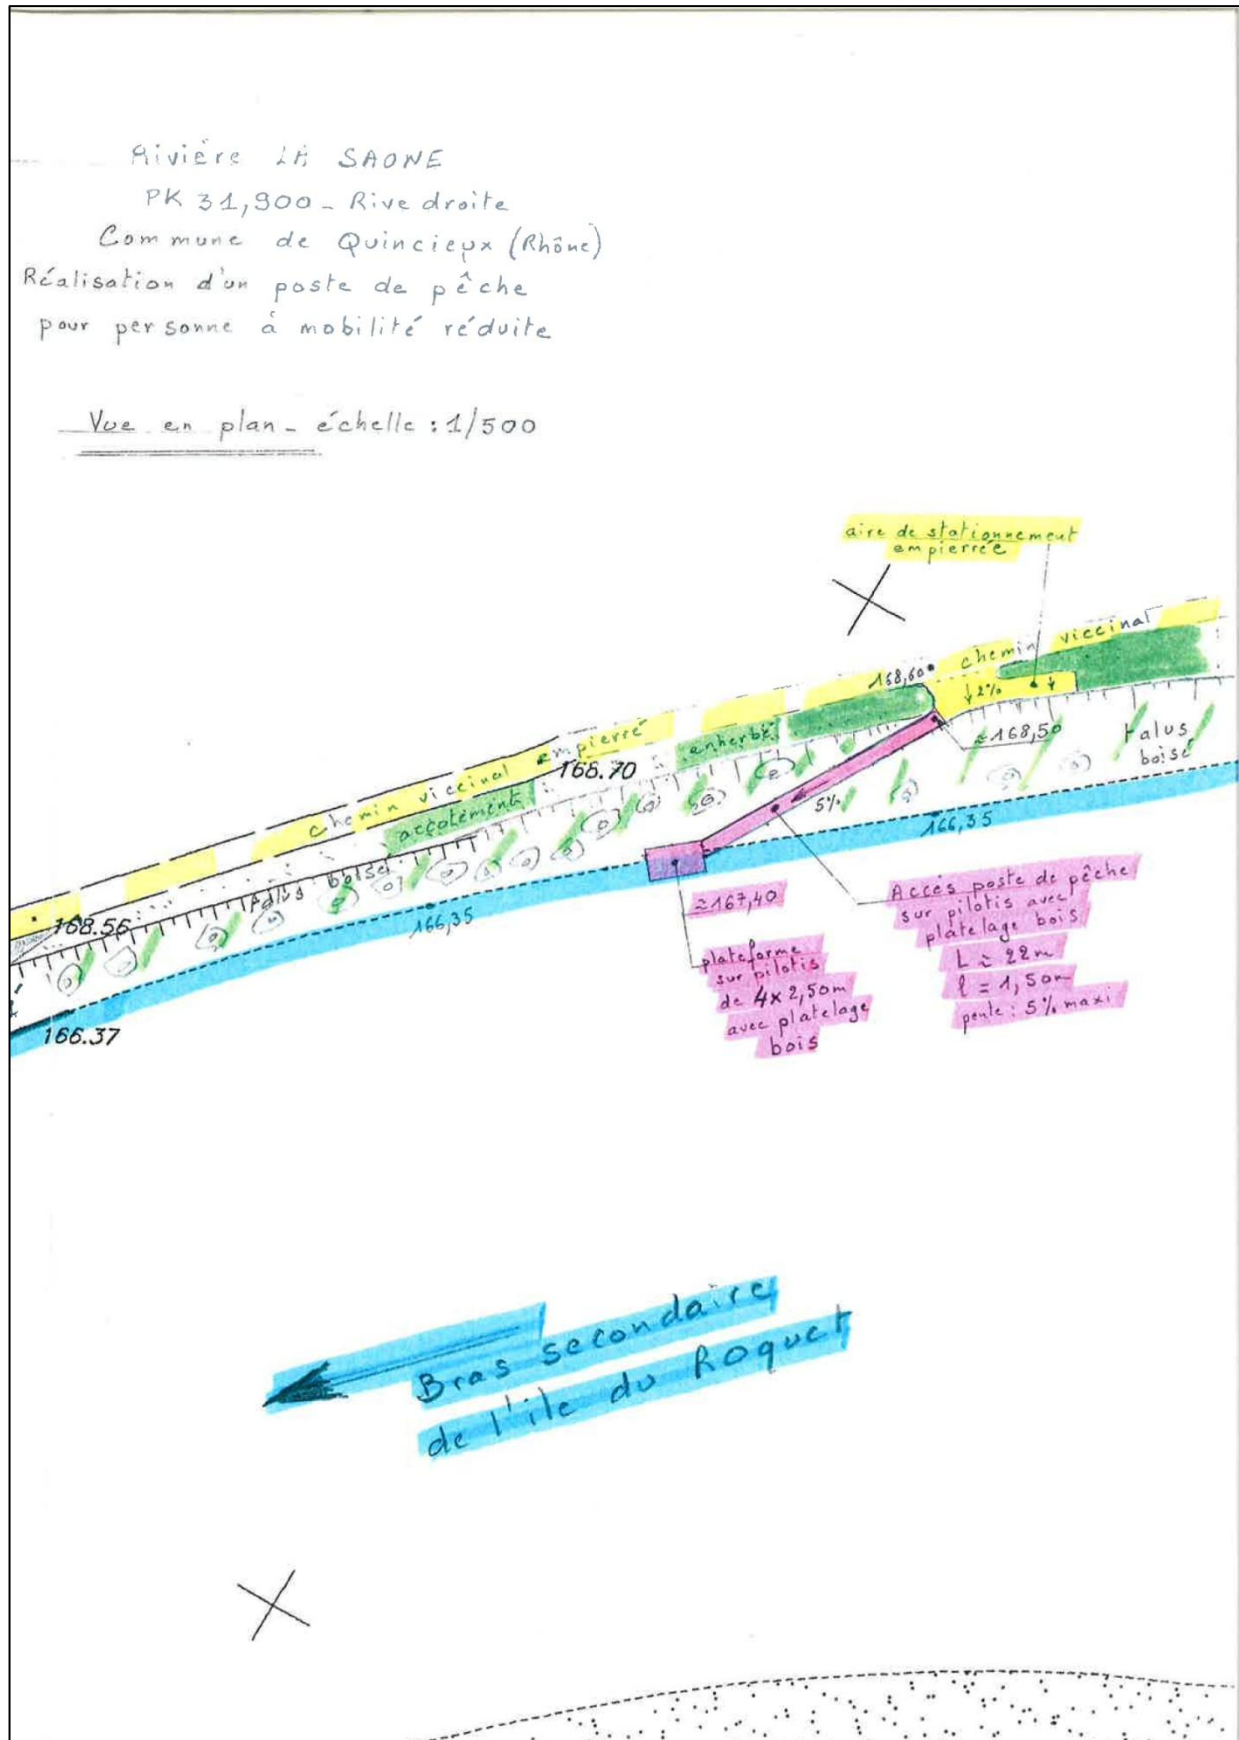 Rivière LA SAONE
PK 31,900 - Rive droite
Commune de Quincieux (Rhône)
Réalisation d'un poste de pêche
pour personne à mobilité réduite
Vue en plan - échelle : 1/500
aire de stationnement
empierrée
chemin viccinal
168,60
↓2% ↓
≈168,50
talus
boisé
enherbé
chemin viccinal empierré
168.70
accotement
5%
166,35
talus boisé
168.56
166,35
166.37
≈167,40
plateforme
sur pilotis
de 4x2,50m
avec platelage
bois
Accès poste de pêche
sur pilotis avec
platelage bois
L ≈ 22m
l = 1,50m
pente : 5% maxi
Bras secondaire
de l'ile du Roquet